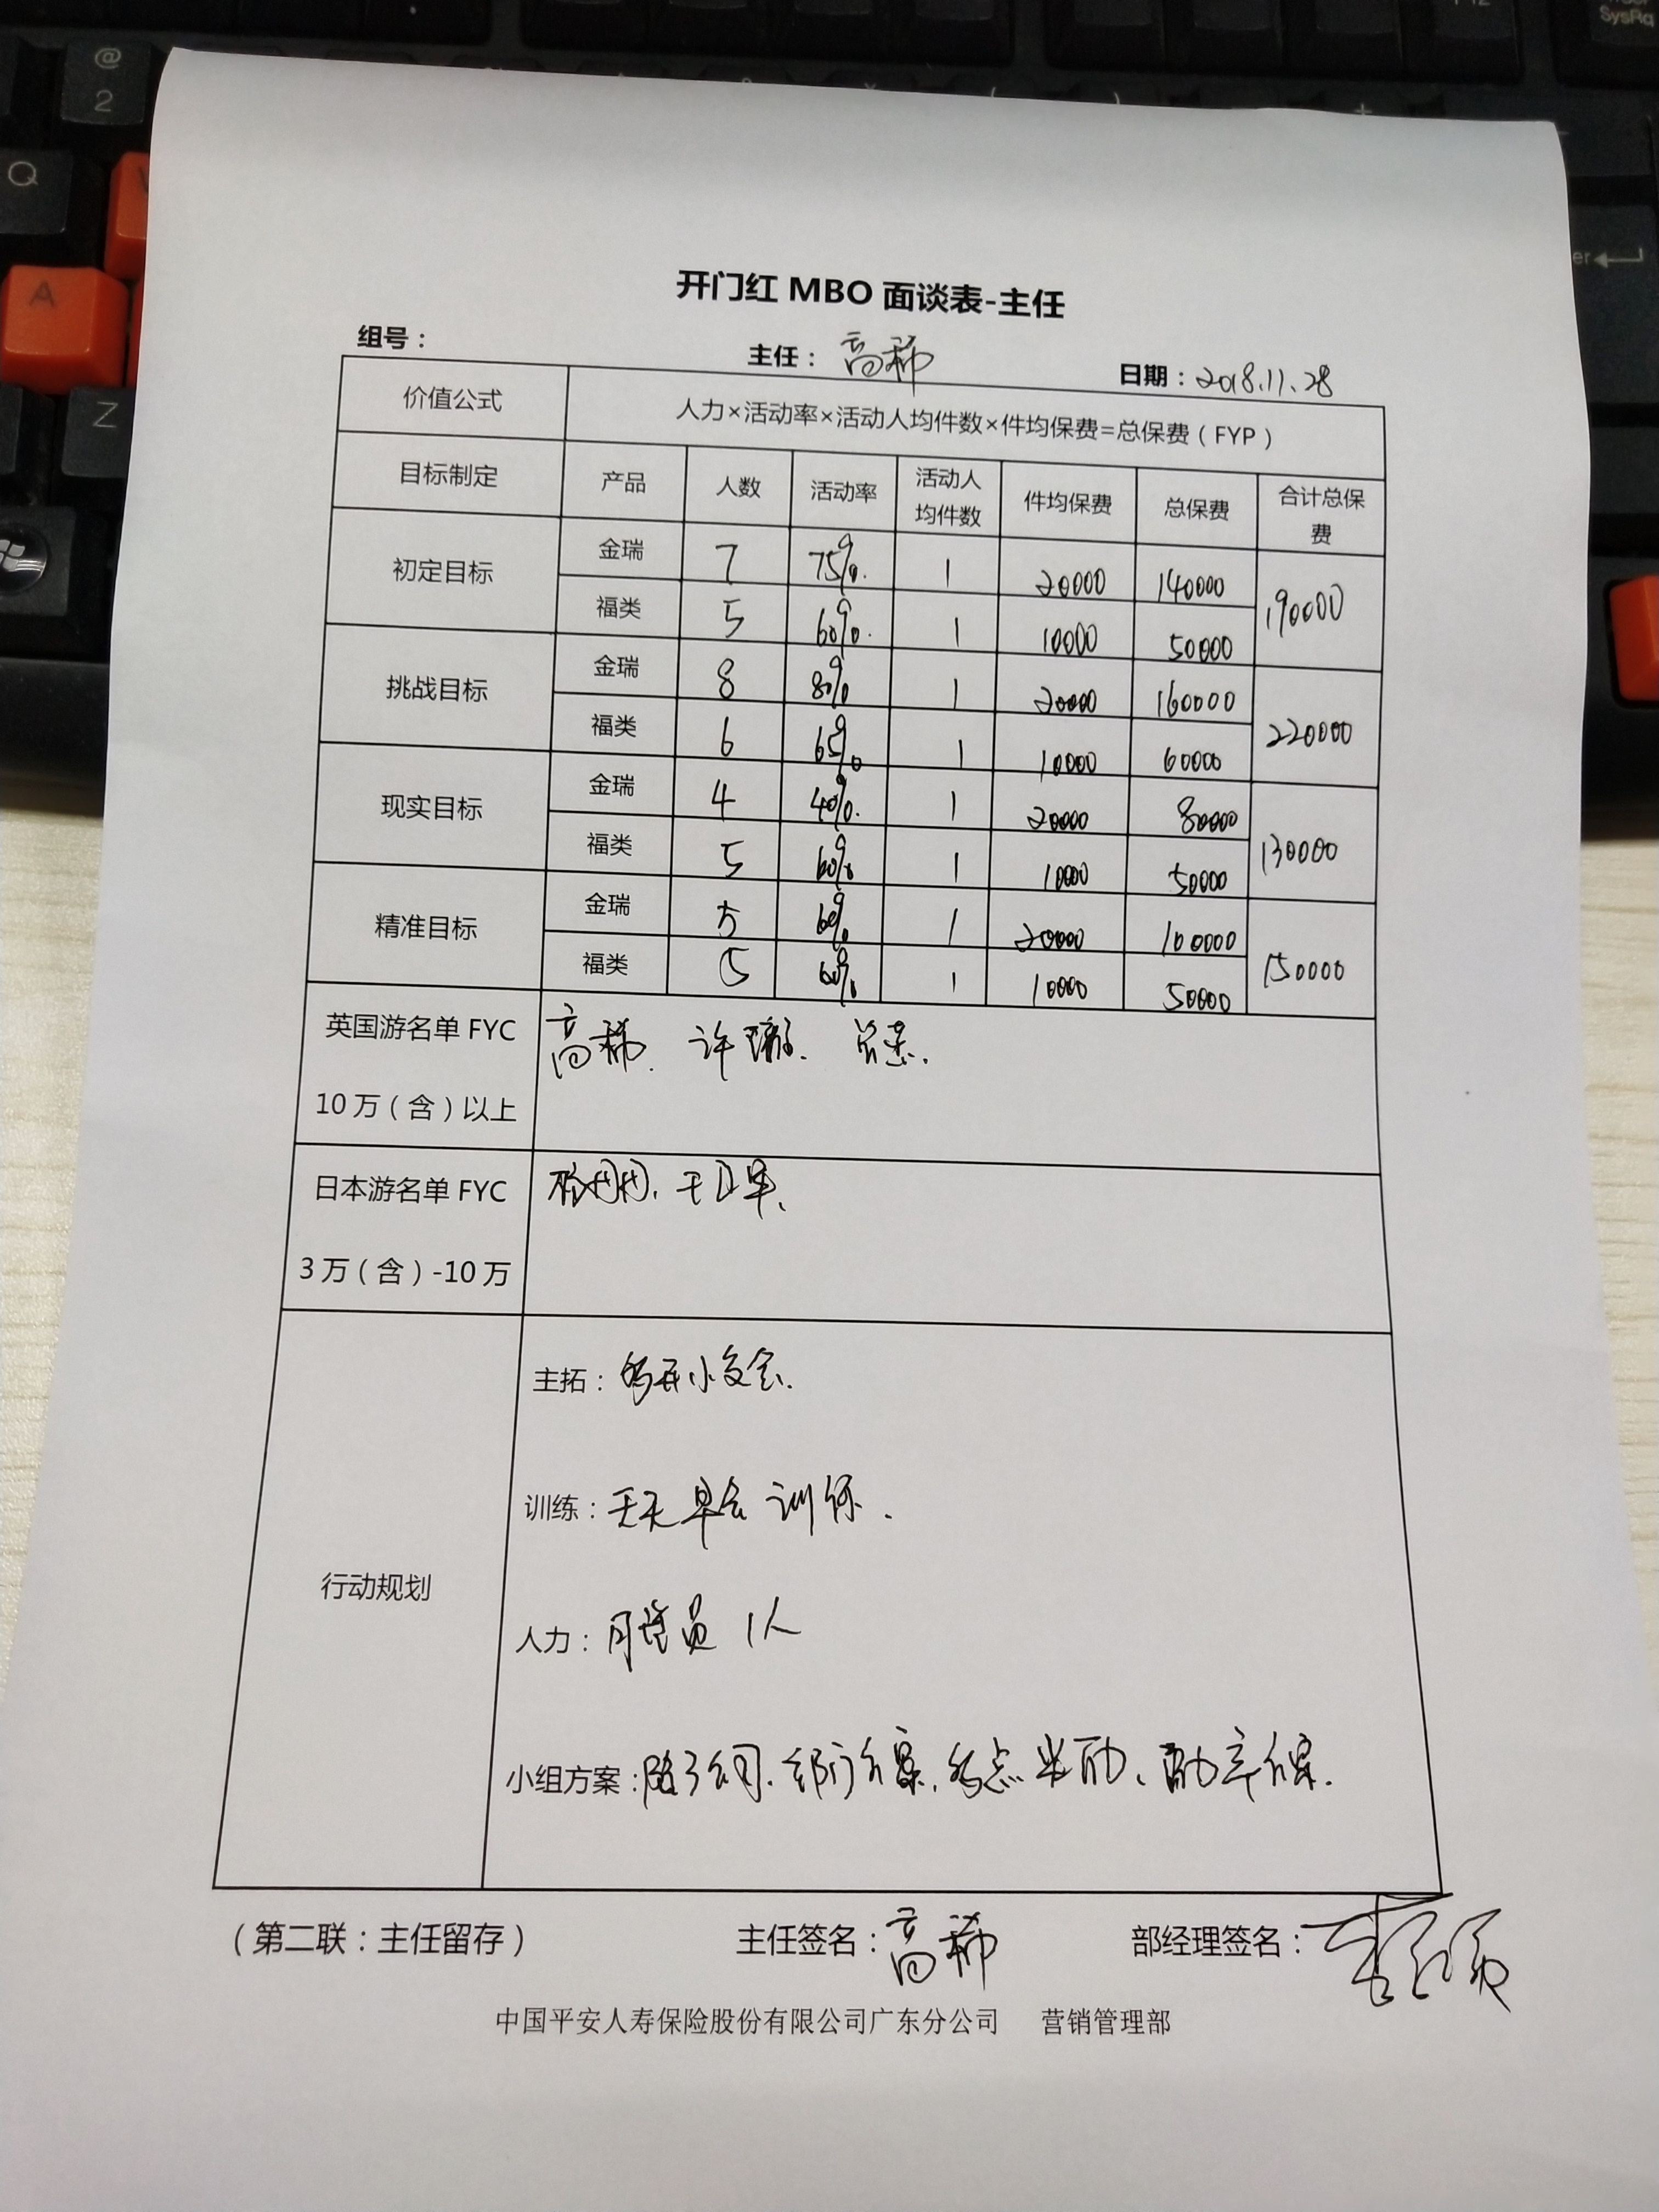 开门红 MBO 面谈表-主任
组号： 主任：高稀 日期：2018.11.28
价值公式 人力×活动率×活动人均件数×件均保费=总保费（FYP）
目标制定 产品 人数 活动率 活动人均件数 件均保费 总保费 合计总保费
初定目标 金瑞 7 75% 1 20000 140000 190000
福类 5 60% 1 10000 50000
挑战目标 金瑞 8 80% 1 20000 160000 220000
福类 6 65% 1 10000 60000
现实目标 金瑞 4 40% 1 20000 80000 130000
福类 5 60% 1 10000 50000
精准目标 金瑞 5 60% 1 20000 100000 150000
福类 5 60% 1 10000 50000
英国游名单 FYC 高稀. 许
10 万（含）以上
日本游名单 FYC
3 万（含）-10 万
行动规划
主拓：多开小交会.
训练：天天早会训练.
人力：月增员 1人
小组方案：除了公司.部门方案.
（第二联：主任留存） 主任签名：高稀 部经理签名：
中国平安人寿保险股份有限公司广东分公司 营销管理部
@
2
Q
A
Z
SysRq